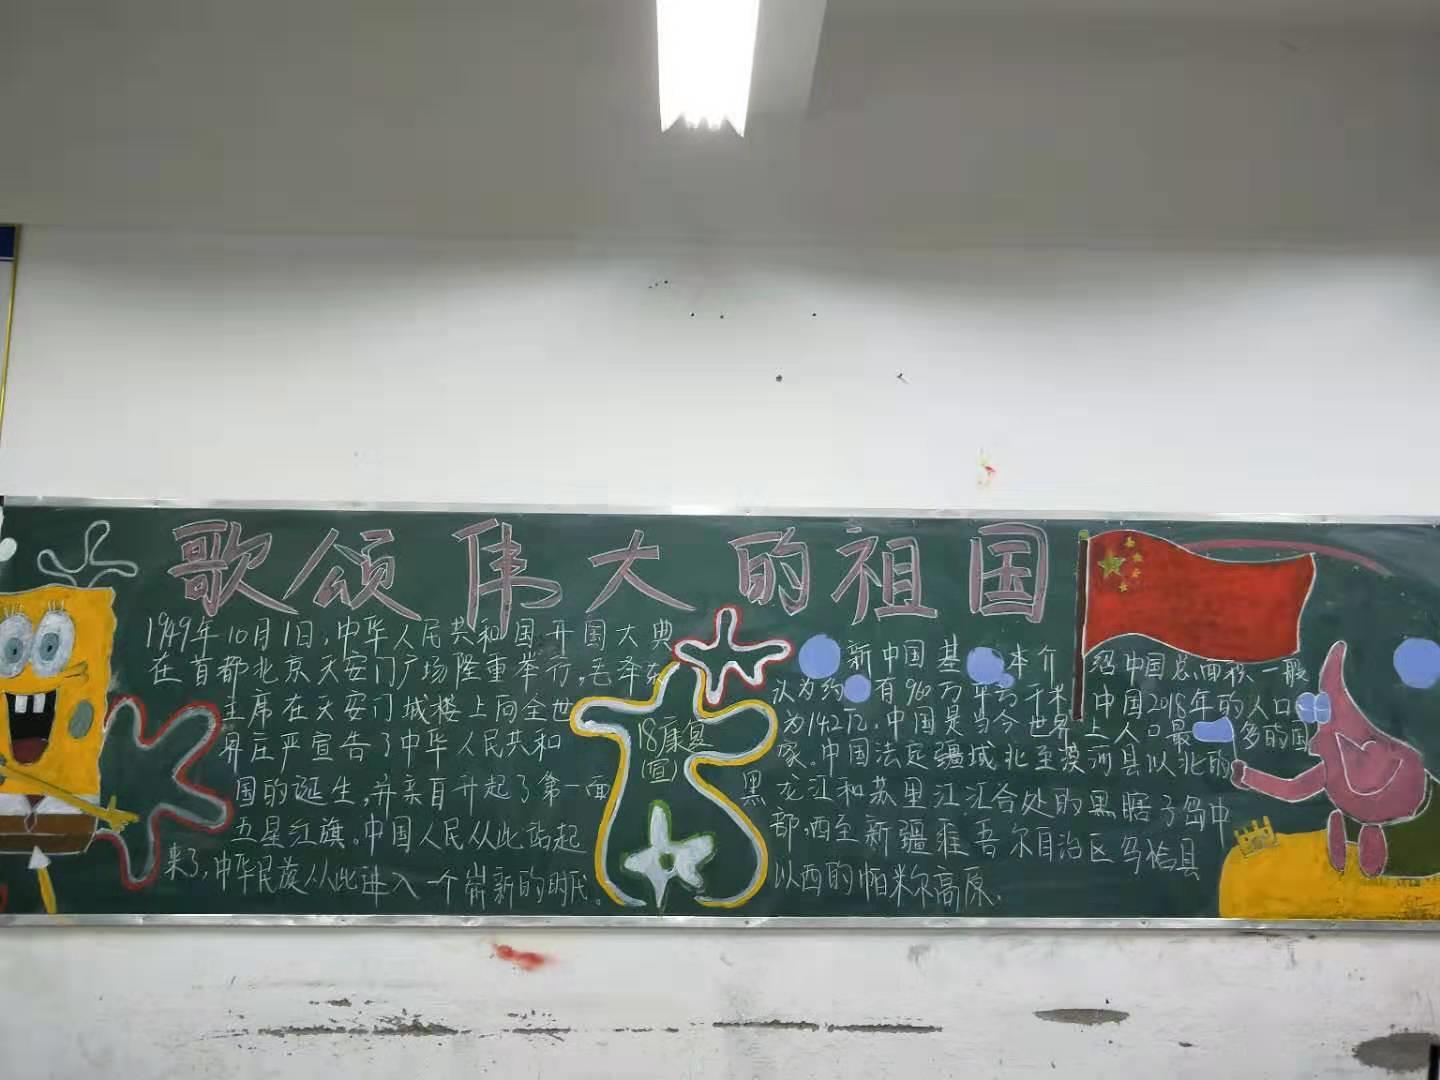 歌颂伟大的祖国
1949年10月1日,中华人民共和国开国大典
在首都北京天安门广场隆重举行,毛泽东
主席在天安门城楼上向全世
界庄严宣告了中华人民共和
国的诞生,并亲自升起了第一面
五星红旗。中国人民从此站起
来了,中华民族从此进入一个崭新的时氏。
18康奥
(宣)
新中国基本介绍中国总面积一般
认为约有960万平方千米 中国2018年的人口
为14.2亿.中国是当今世界上人口最多的国
家.中国法定疆域北至漠河县以北的
黑龙江和苏里江汇合处的黑瞎子岛中
部,西至新疆维吾尔自治区乌恰县
以西的帕米尔高原.